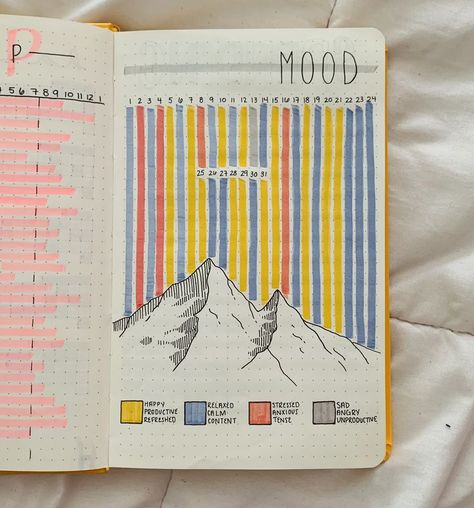 P
7 8 9 10 11 12 1
MOOD
1 2 3 4 5 6 7 8 9 10 11 12 13 14 15 16 17 18 19 20 21 22 23 24
25 26 27 28 29 30 31
HAPPY
PRODUCTIVE
REFRESHED
RELAXED
CALM
CONTENT
STRESSED
ANXIOUS
TENSE
SAD
ANGRY
UNPRODUCTIVE